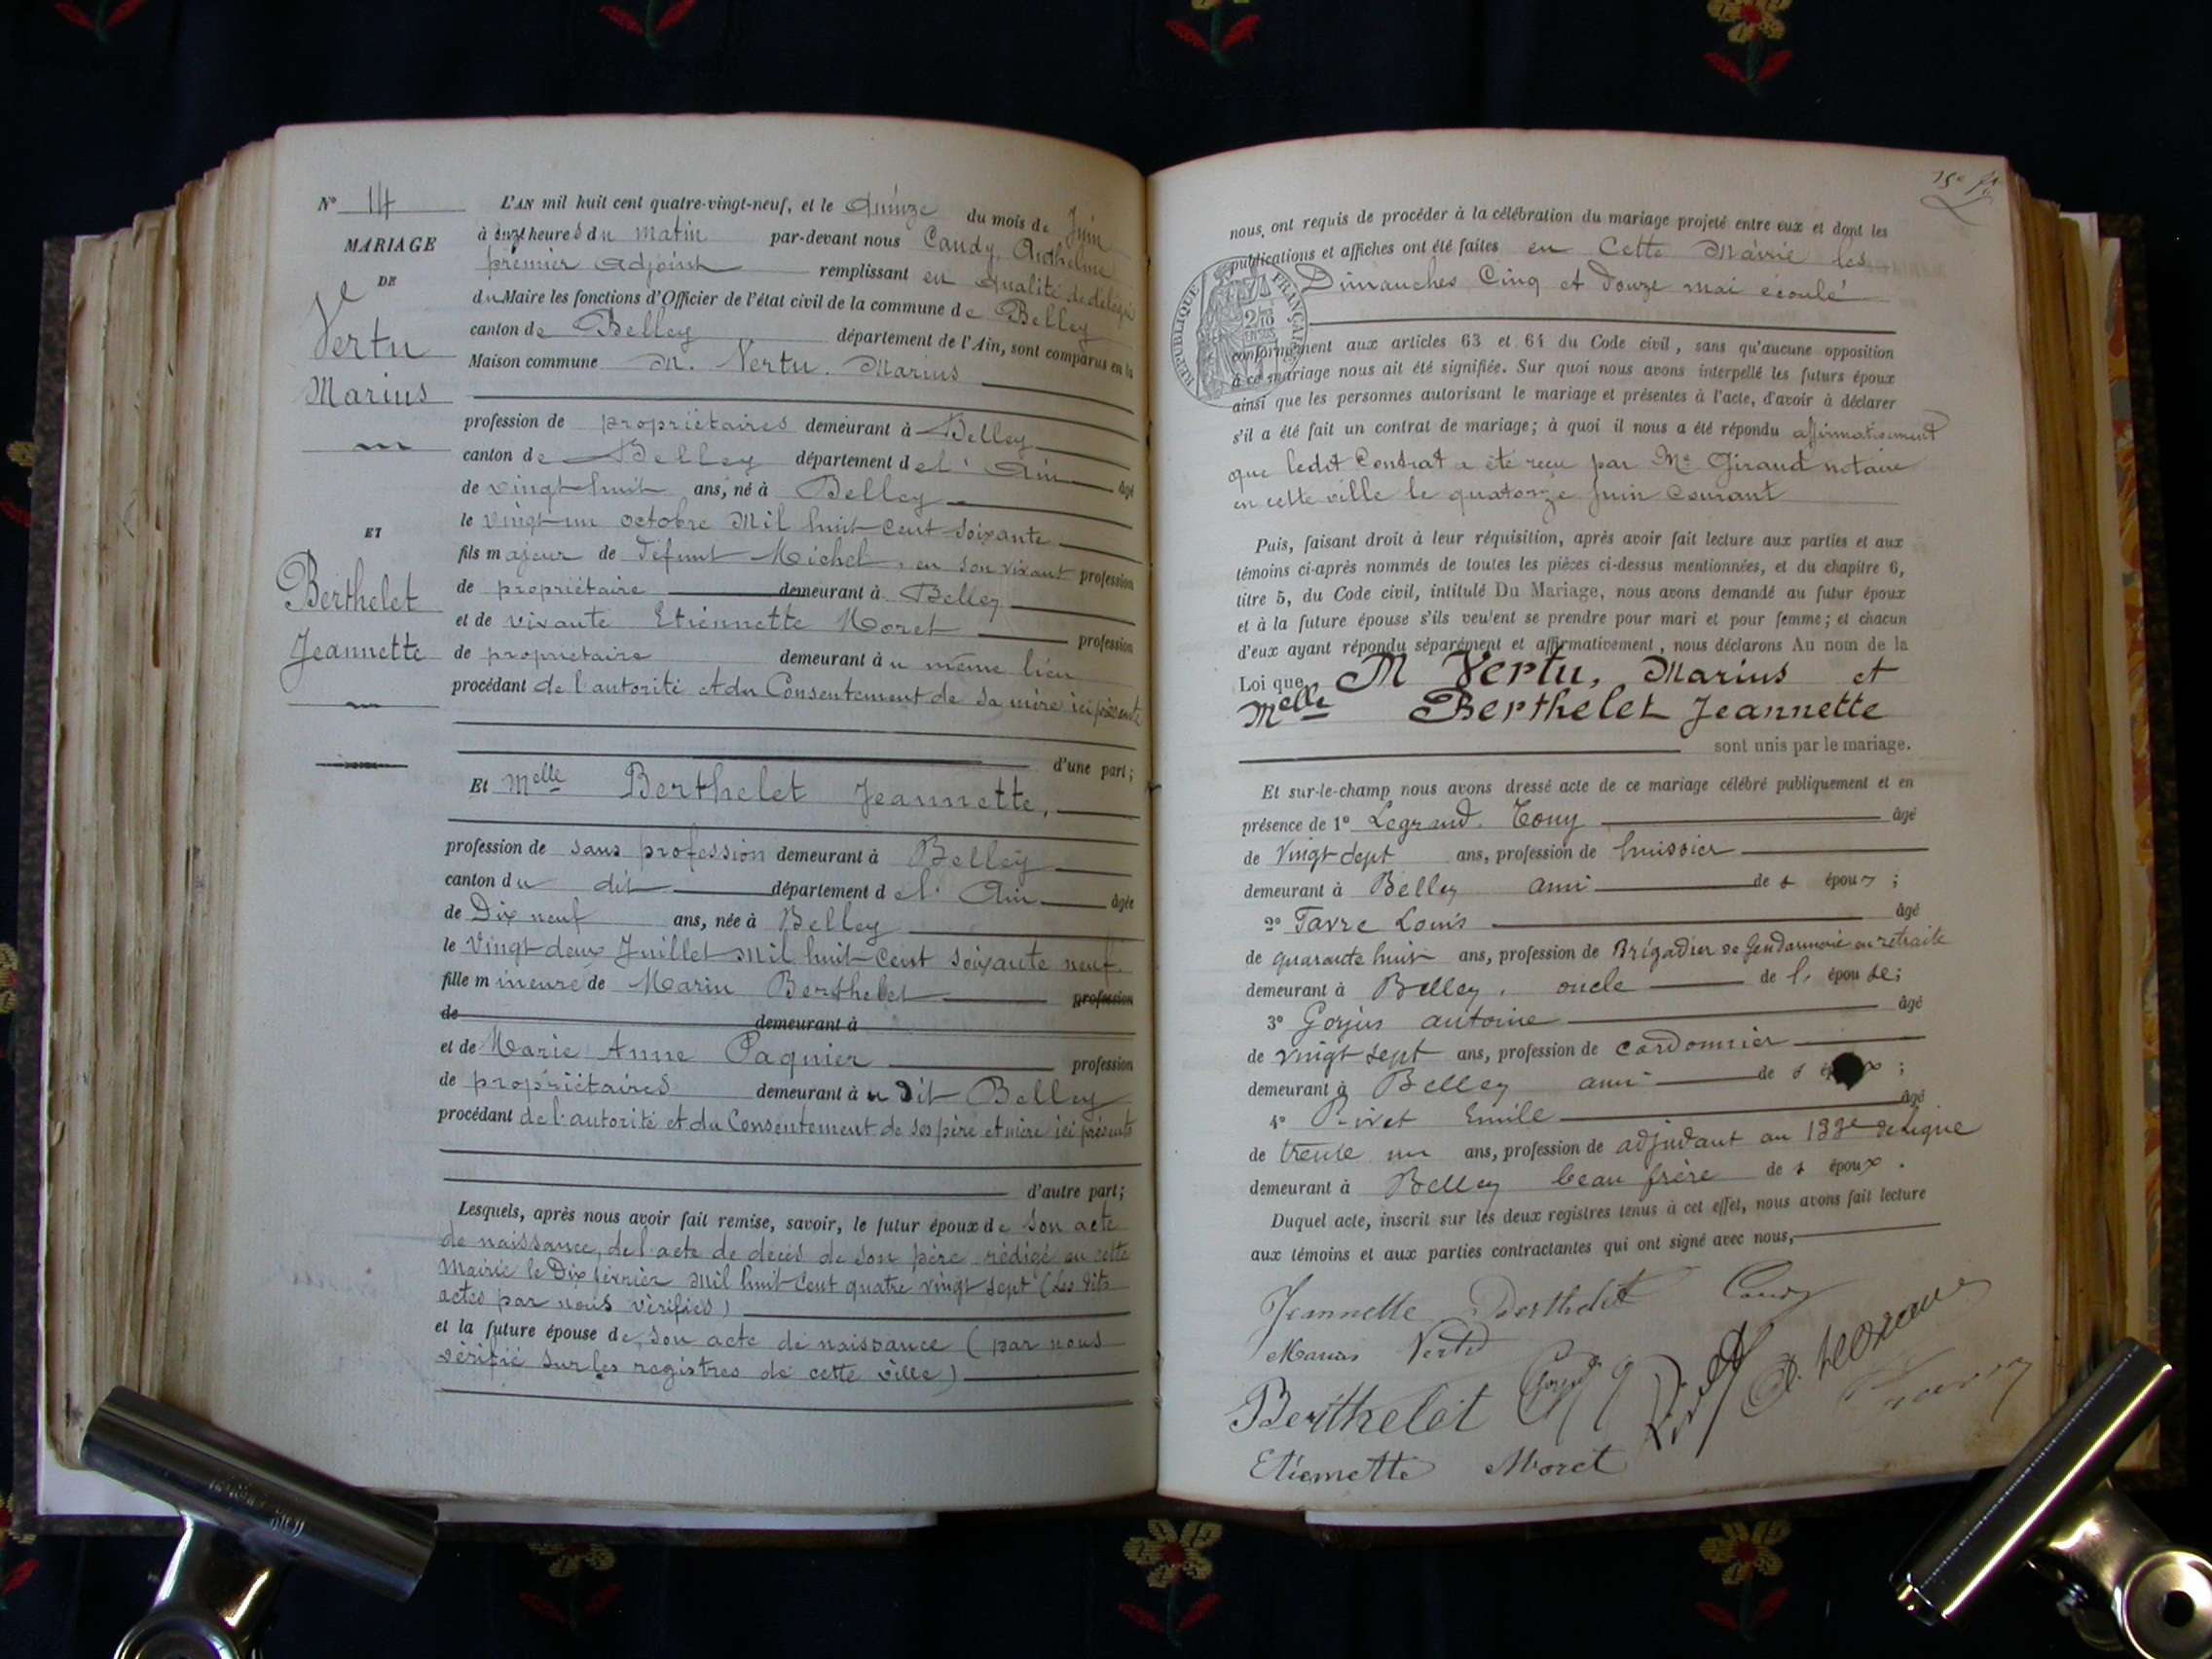 N° 14
MARIAGE
DE
Vertu
Marius
ET
Berthelet
Jeannette
L'AN mil huit cent quatre-vingt-neuf, et le Quinze du mois de Juin
à onze heures du matin par-devant nous Candy, Anthelme
premier Adjoint remplissant en qualité de délégué
du Maire les fonctions d'Officier de l'état civil de la commune de Belley
canton de Belley département de l'Ain, sont comparus en la
Maison commune M. Vertu. Marius
profession de propriétaires demeurant à Belley
canton de Belley département de l'Ain âgé
de vingt huit ans, né à Belley
le vingt un octobre Mil huit cent soixante
fils majeur de défunt Michel, en son vivant profession
de propriétaire demeurant à Belley
et de vivante Etiennette Moret profession
de propriétaire demeurant àu même lieu
procédant de l'autorité et du Consentement de sa mère ici présente
d'une part;
Et Melle Berthelet Jeannette,
profession de sans profession demeurant à Belley
canton du dit département de l'Ain âgée
de Dix neuf ans, née à Belley
le Vingt deux Juillet Mil huit Cent soixante neuf.
fille mineure de Marin Berthelet profession
de demeurant à
et de Marie Anne Pagnier profession
de propriétaires demeurant àu dit Belley
procédant de l'autorité et du Consentement de ses père et mère ici présents
d'autre part;
Lesquels, après nous avoir fait remise, savoir, le futur époux de son acte
de naissance, de l'acte de décès de son père rédigé en cette
Mairie le Dix février Mil huit Cent quatre vingt sept (Les dits
actes par nous vérifiés)
et la future épouse de son acte de naissance (par nous
vérifié sur les registres de cette ville)
nous, ont requis de procéder à la célébration du mariage projeté entre eux et dont les
publications et affiches ont été faites en Cette Mairie les
Dimanches Cinq et Douze mai écoulé
RÉPUBLIQUE FRANÇAISE
2/10
EN SUS
conformément aux articles 63 et 64 du Code civil, sans qu'aucune opposition
à ce mariage nous ait été signifiée. Sur quoi nous avons interpellé les futurs époux
ainsi que les personnes autorisant le mariage et présentes à l'acte, d'avoir à déclarer
s'il a été fait un contrat de mariage; à quoi il nous a été répondu affirmativement
que ledit Contrat a été reçu par Me Giraud notaire
en cette ville le quatorze Juin Courant
Puis, faisant droit à leur réquisition, après avoir fait lecture aux parties et aux
témoins ci-après nommés de toutes les pièces ci-dessus mentionnées, et du chapitre 6,
titre 5, du Code civil, intitulé Du Mariage, nous avons demandé au futur époux
et à la future épouse s'ils veulent se prendre pour mari et pour femme; et chacun
d'eux ayant répondu séparément et affirmativement, nous déclarons Au nom de la
Loi que M Vertu, Marius et
Melle Berthelet Jeannette
sont unis par le mariage.
Et sur-le-champ nous avons dressé acte de ce mariage célébré publiquement et en
présence de 1° Legrand. Tony âgé
de Vingt sept ans, profession de huissier
demeurant à Belley ami des époux;
2° Favre Louis âgé
de quarante huit ans, profession de Brigadier de Gendarmerie en retraite
demeurant à Belley, oncle de l'épouse;
3° Gorjus antoine âgé
de vingt sept ans, profession de cordonnier
demeurant à Belley ami des époux;
4° Rivet Emile âgé
de trente un ans, profession de adjudant au 133e de Ligne
demeurant à Belley beau frère des époux.
Duquel acte, inscrit sur les deux registres tenus à cet effet, nous avons fait lecture
aux témoins et aux parties contractantes qui ont signé avec nous,
Jeannette Berthelet Candy
Marius Vertu
Berthelet Rivet
Etiennette Moret